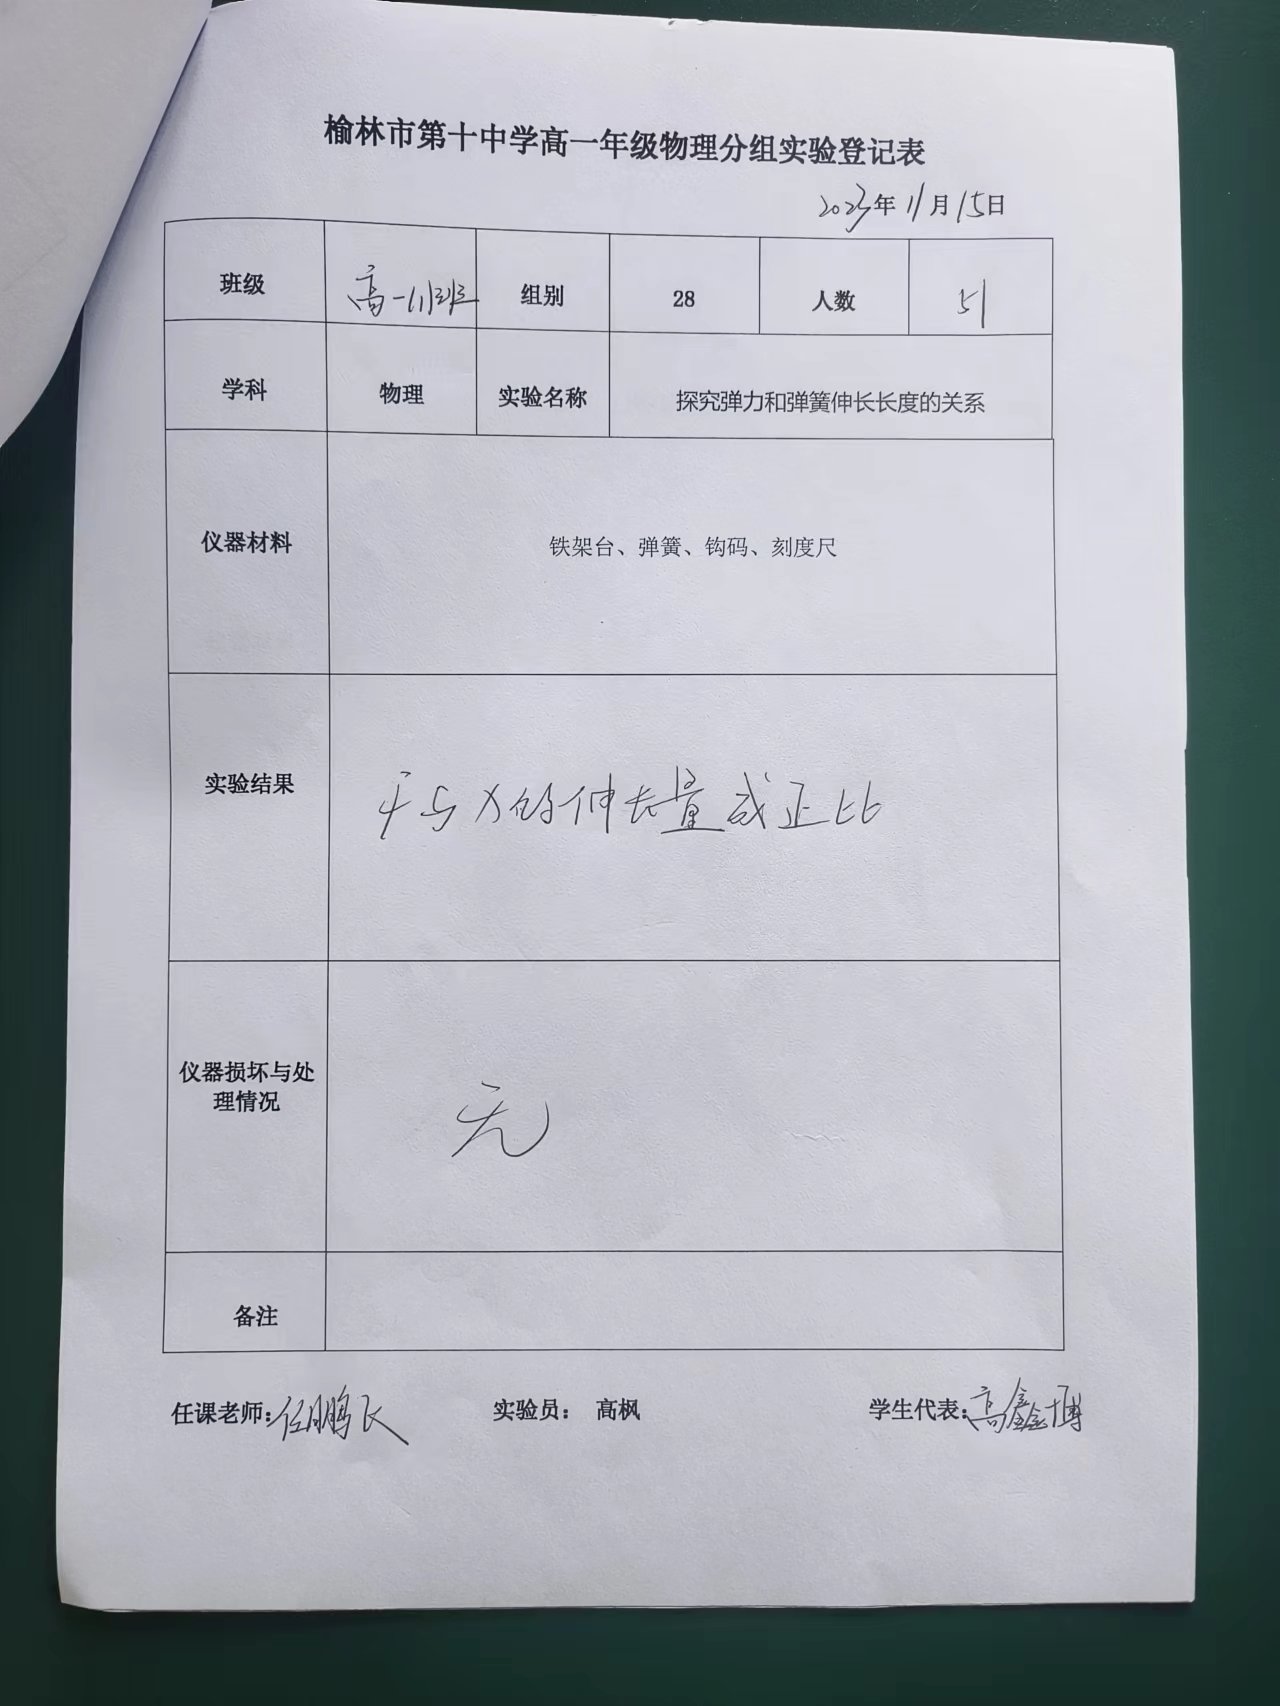 榆林市第十中学高一年级物理分组实验登记表
2023年11月15日
班级 高一11班 组别 28 人数 51
学科 物理 实验名称 探究弹力和弹簧伸长长度的关系
仪器材料 铁架台、弹簧、钩码、刻度尺
实验结果 F与X的伸长量成正比
仪器损坏与处
理情况
无
备注
任课老师:任鹏飞 实验员: 高枫 学生代表:高鑫博